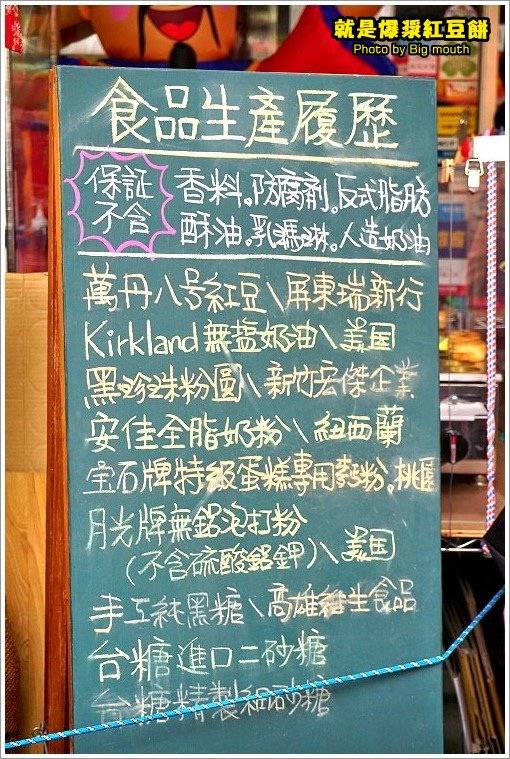 就是爆漿紅豆餅
Photo by Big mouth
食品生產履歷
保証
不含
香料。防腐劑。反式脂肪
酥油。乳瑪琳。人造奶油
萬丹八号紅豆\屏東瑞新行
Kirkland無盐奶油\美国
黑珍珠粉圓\新竹宏傑企業
安佳全脂奶粉\紐西蘭
宝石牌特級蛋糕專用麵粉.桃園
月光牌無鋁泡打粉
(不含硫酸鋁鉀)\美国
手工純黑糖\高雄維生食品
台糖進口二砂糖
台糖精製細砂糖